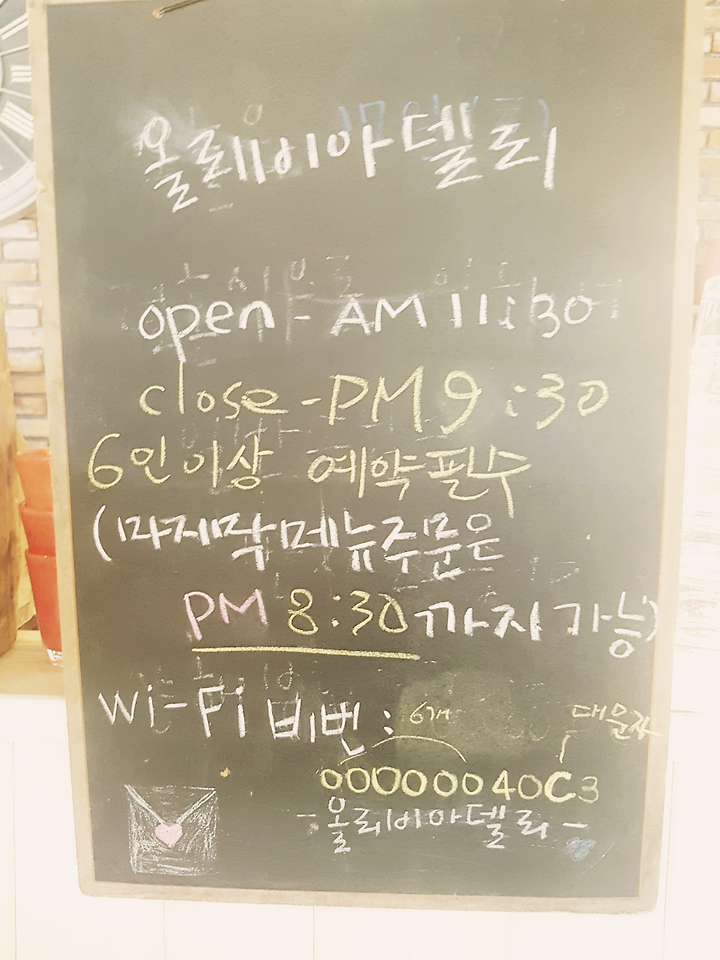 올리비아델리
open - AM 11:30
close - PM 9:30
6인이상 예약필수
(마지막메뉴주문은
PM 8:30까지가능)
Wi-Fi 비번 : 6개 대문자
00000040C3
-올리비아델리-